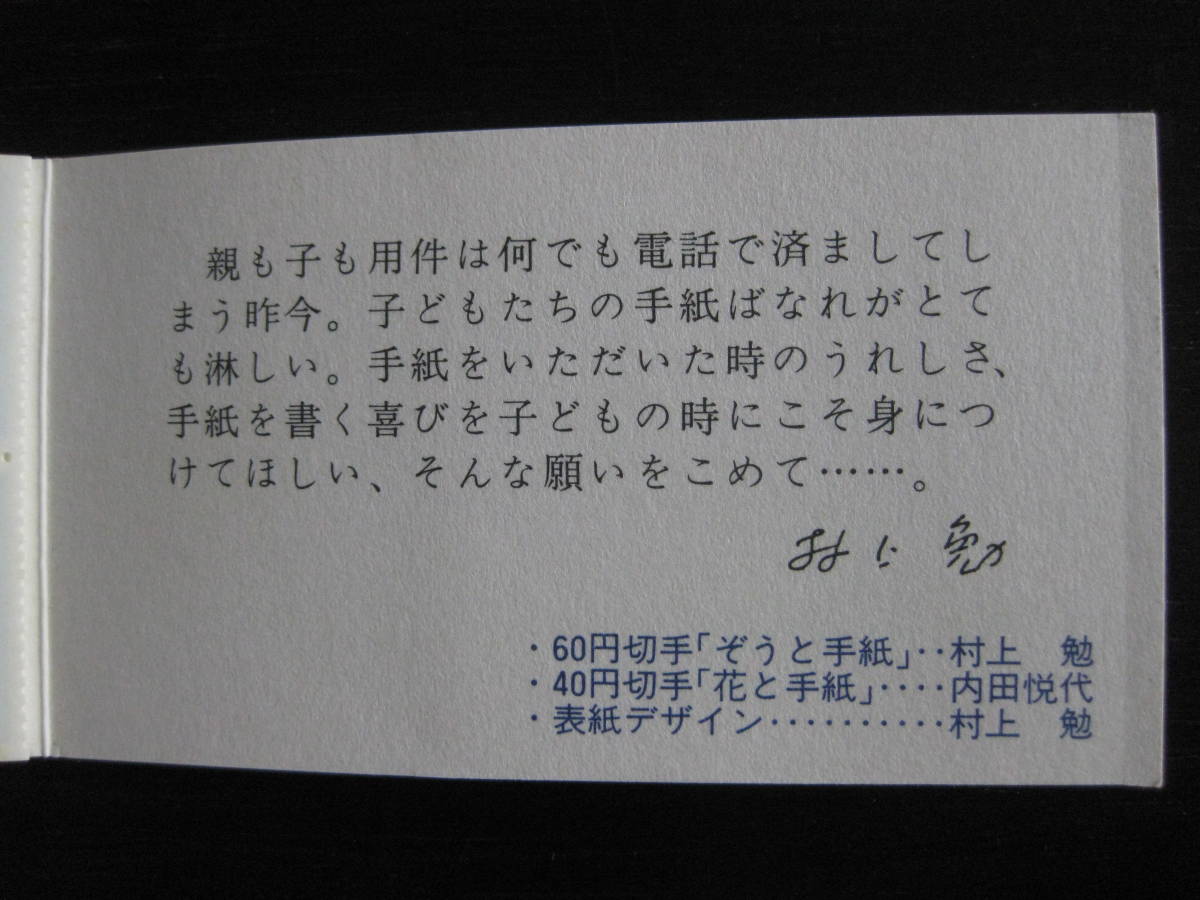 親も子も用件は何でも電話で済ましてし
まう昨今。子どもたちの手紙ばなれがとて
も淋しい。手紙をいただいた時のうれしさ、
手紙を書く喜びを子どもの時にこそ身につ
けてほしい、そんな願いをこめて……。
村上 勉
・60円切手「ぞうと手紙」‥村上 勉
・40円切手「花と手紙」‥‥内田悦代
・表紙デザイン‥‥‥‥‥村上 勉